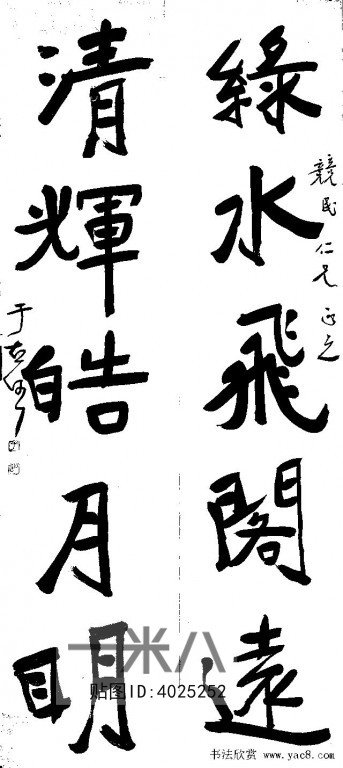 綠水飛閣遠
競民仁兄正之
清輝皓月明
于右任
米八
贴图ID:4025252
书法欣赏 www.yac8.com